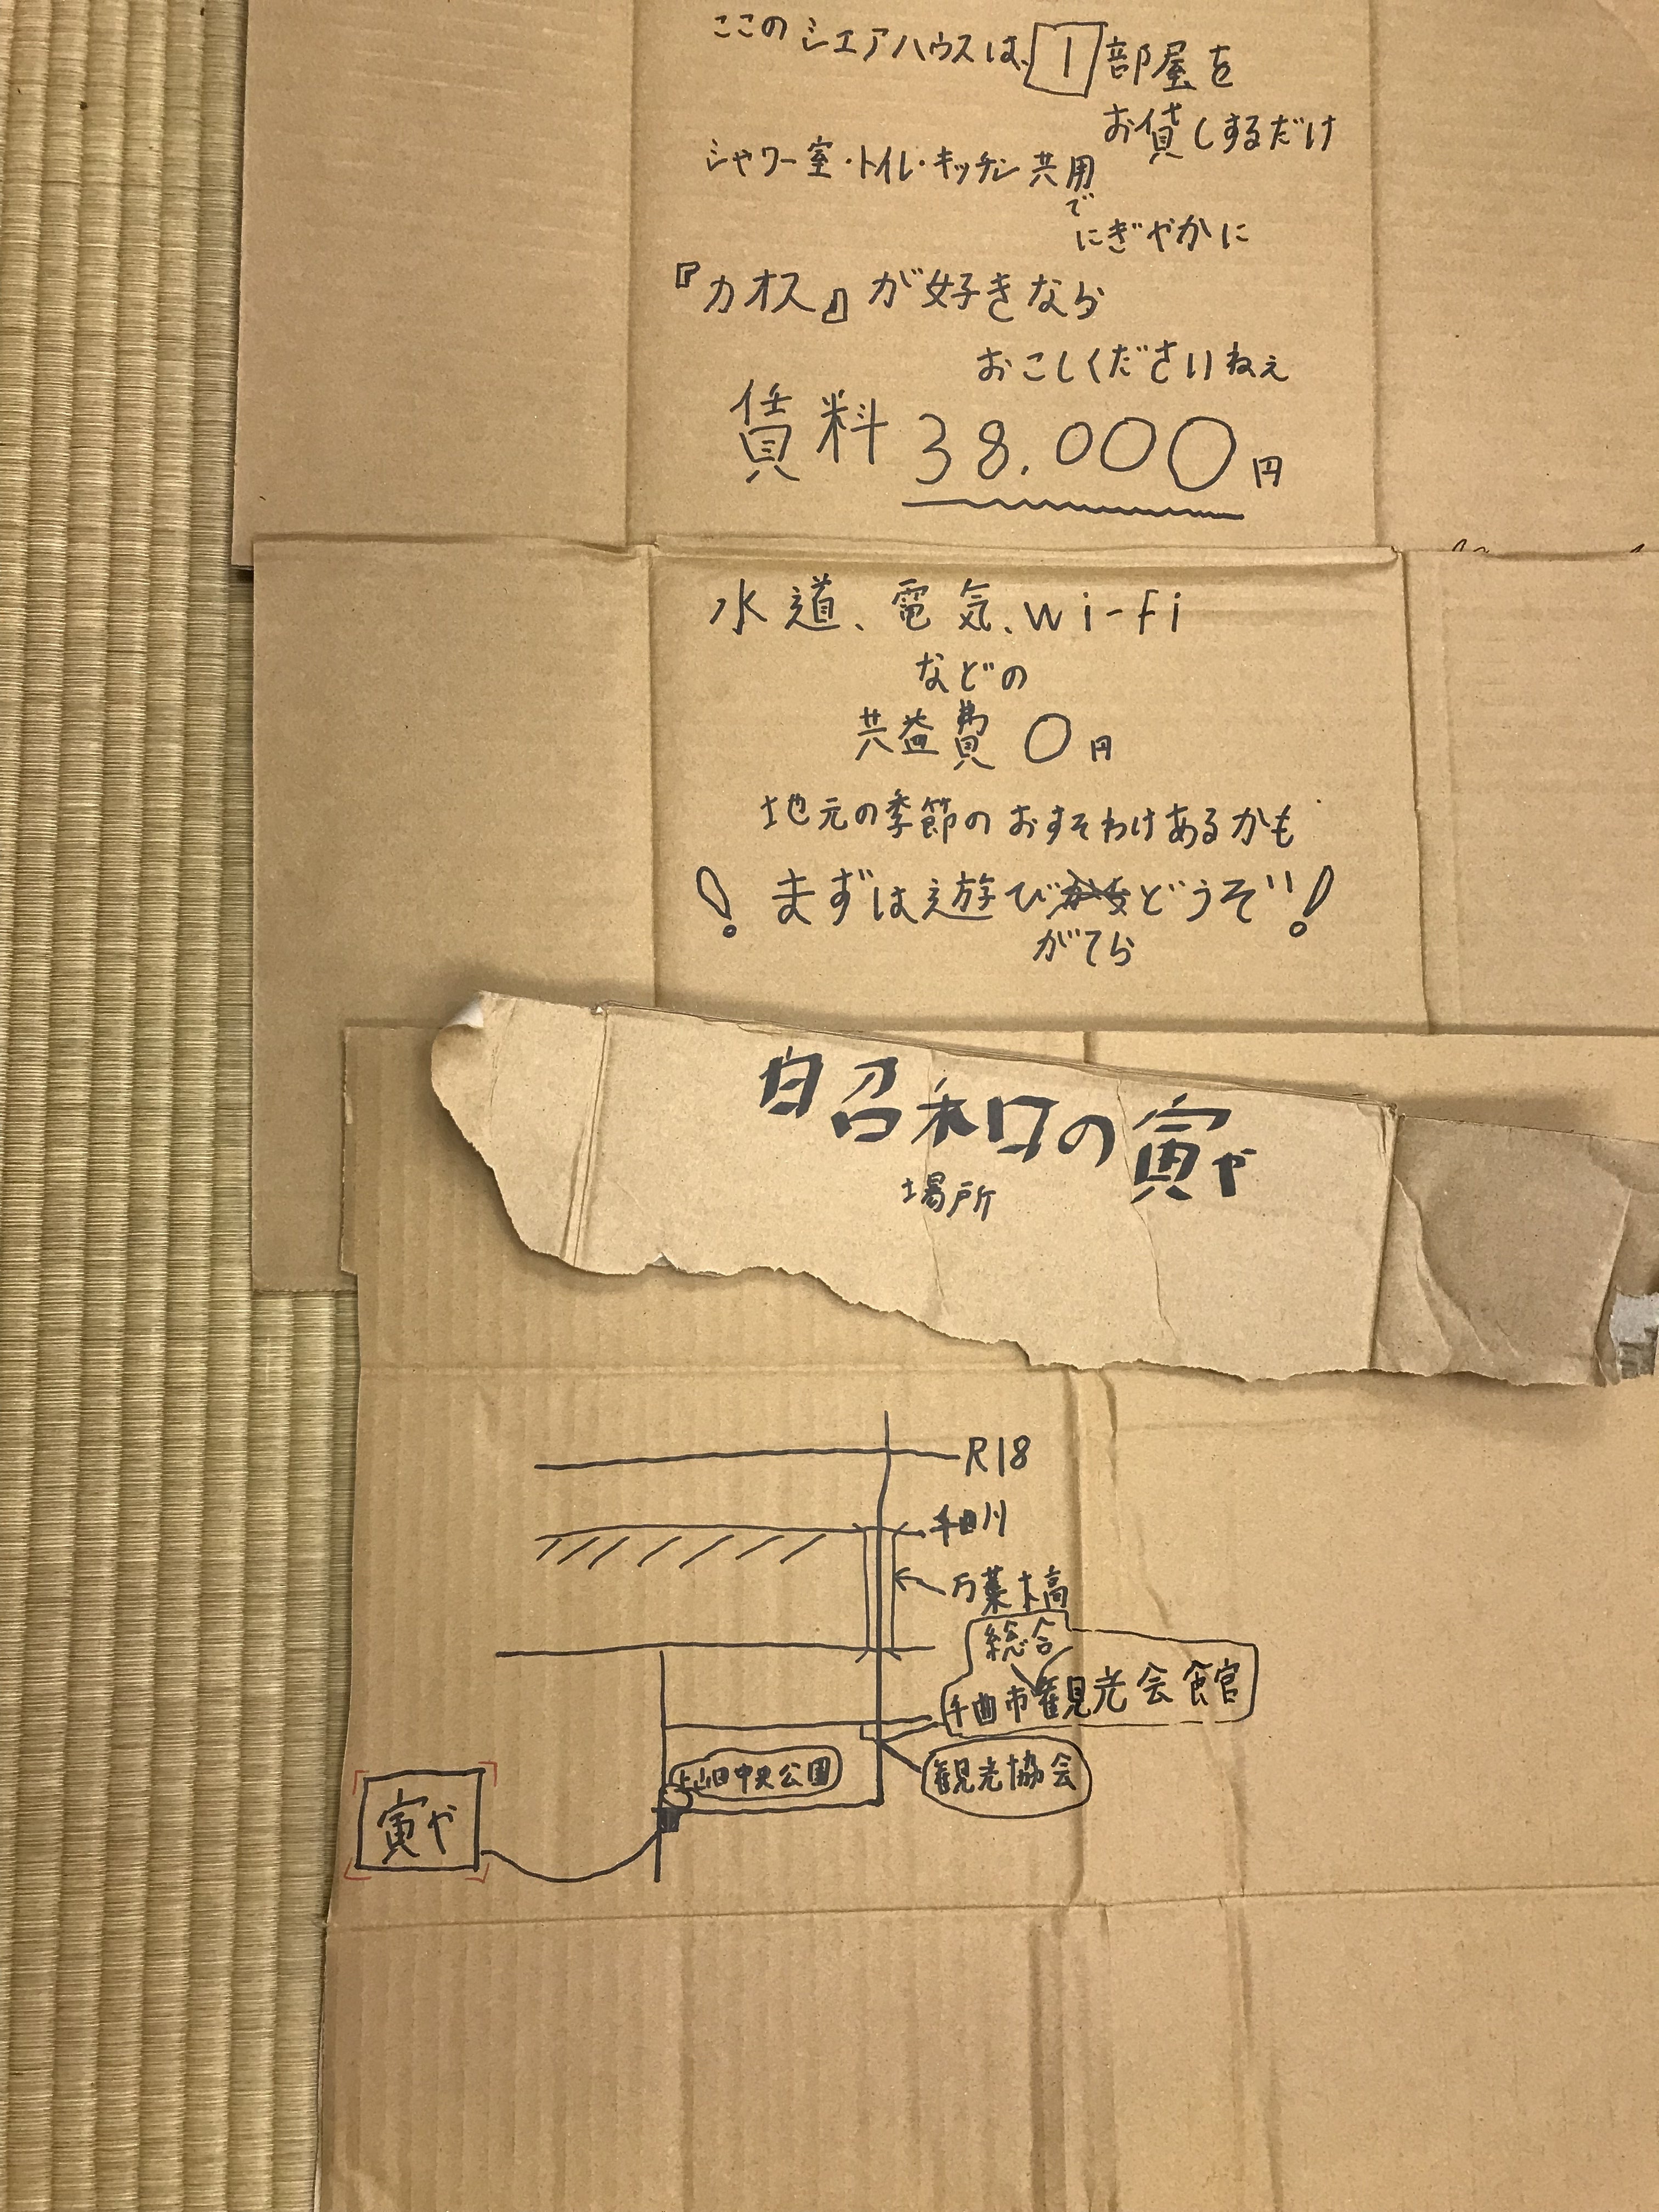 ここのシエアハウスは、1部屋を
お貸しするだけ
シャワー室・トイレ・キッチン共用
で
にぎやかに
『カオス』が好きなら
おこしくださいねぇ
賃料 38.000円
水道、電気、wi-fi
などの
共益費 0円
地元の季節のおすそわけあるかも
! まずは遊びどうぞ!
がてら
昭和の寅や
場所
R18
千曲川
万葉橋
総合
千曲市観光会館
上山田中央公園
観光協会
寅や